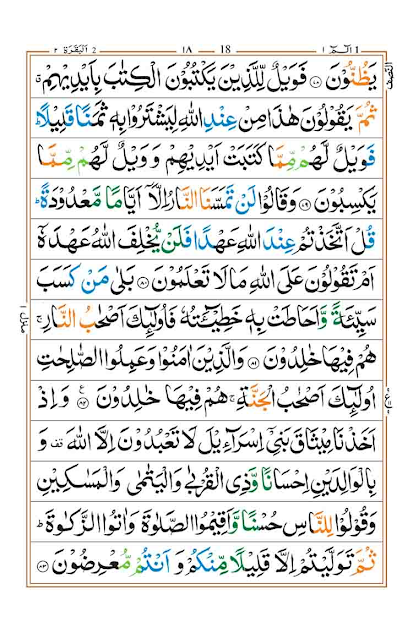 2 اَلْبَقَرَة ٢ ١٨ 18 الٓمّٓ ١ 1
يَظُنُّوْنَ ﴿٧٨﴾ فَوَيْلٌ لِّلَّذِيْنَ يَكْتُبُوْنَ الْكِتٰبَ بِاَيْدِيْهِمْ ۗ
ثُمَّ يَقُوْلُوْنَ هٰذَا مِنْ عِنْدِ اللّٰهِ لِيَشْتَرُوْا بِهٖ ثَمَنًا قَلِيْلًا ؕ
فَوَيْلٌ لَّهُمْ مِّمَّا كَتَبَتْ اَيْدِيْهِمْ وَ وَيْلٌ لَّهُمْ مِّمَّا
يَكْسِبُوْنَ ﴿٧٩﴾ وَقَالُوْا لَنْ تَمَسَّنَا النَّارُ اِلَّاۤ اَيَّامًا مَّعْدُوْدَةً ؕ
قُلْ اَتَّخَذْتُمْ عِنْدَ اللّٰهِ عَهْدًا فَلَنْ يُّخْلِفَ اللّٰهُ عَهْدَهٗۤ
اَمْ تَقُوْلُوْنَ عَلَى اللّٰهِ مَا لَا تَعْلَمُوْنَ ﴿٨٠﴾ بَلٰى مَنْ كَسَبَ
سَيِّئَةً وَّاَحَاطَتْ بِهٖ خَطِيْٓئَتُهٗ فَاُولٰٓئِكَ اَصْحٰبُ النَّارِ ۚ
هُمْ فِيْهَا خٰلِدُوْنَ ﴿٨١﴾ وَالَّذِيْنَ اٰمَنُوْا وَعَمِلُوا الصّٰلِحٰتِ
اُولٰٓئِكَ اَصْحٰبُ الْجَنَّةِ ۚ هُمْ فِيْهَا خٰلِدُوْنَ ﴿٨٢﴾ وَاِذْ
اَخَذْنَا مِيْثَاقَ بَنِيْۤ اِسْرَآءِيْلَ لَا تَعْبُدُوْنَ اِلَّا اللّٰهَ قف وَ
بِالْوَالِدَيْنِ اِحْسَانًا وَّذِى الْقُرْبٰى وَالْيَتٰمٰى وَالْمَسٰكِيْنِ
وَقُوْلُوْا لِلنَّاسِ حُسْنًا وَّاَقِيْمُوا الصَّلٰوةَ وَاٰتُوا الزَّكٰوةَ ؕ
ثُمَّ تَوَلَّيْتُمْ اِلَّا قَلِيْلًا مِّنْكُمْ وَ اَنْتُمْ مُّعْرِضُوْنَ ﴿٨٣﴾
النصف
منزل ١